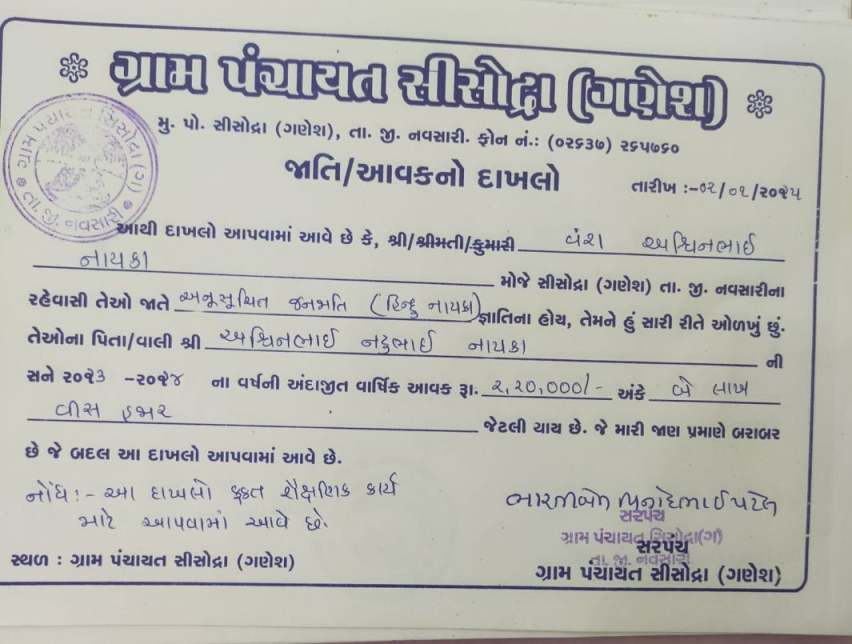 ગ્રામ પંચાયત સીસોદ્રા (ગણેશ)
મુ. પો. સીસોદ્રા (ગણેશ), તા. જી. નવસારી. ફોન નં.: (૦૨૬૩૭) ૨૬૫૭૬૦
જાતિ/આવકનો દાખલો
તારીખ :-૦૨/૦૧/૨૦૨૫
ગ્રામ પંચાયત સિસોદ્રા (ગ)
તા. જી. નવસારી
આથી દાખલો આપવામાં આવે છે કે, શ્રી/શ્રીમતી/કુમારી વંશ અશ્વિનભાઈ
નાયકા મોજે સીસોદ્રા (ગણેશ) તા. જી. નવસારીના
રહેવાસી તેઓ જાતે અનુસૂચિત જનજાતિ (હિન્દુ નાયકા) જ્ઞાતિના હોય, તેમને હું સારી રીતે ઓળખું છું.
તેઓના પિતા/વાલી શ્રી અશ્વિનભાઈ નટુભાઈ નાયકા ની
સને ૨૦૨૩ -૨૦૨૪ ના વર્ષની અંદાજીત વાર્ષિક આવક રૂા. ૨,૨૦,૦૦૦/- અંકે બે લાખ
વીસ હજાર જેટલી થાય છે. જે મારી જાણ પ્રમાણે બરાબર
છે જે બદલ આ દાખલો આપવામાં આવે છે.
નોંધ:- આ દાખલો ફક્ત શૈક્ષણિક કાર્ય
માટે આપવામાં આવે છે.
સરપંચ
ગ્રામ પંચાયત સિસોદ્રા(ગ)
તા. જી. નવસારી
સરપંચ
સ્થળ : ગ્રામ પંચાયત સીસોદ્રા (ગણેશ)
ગ્રામ પંચાયત સીસોદ્રા (ગણેશ)